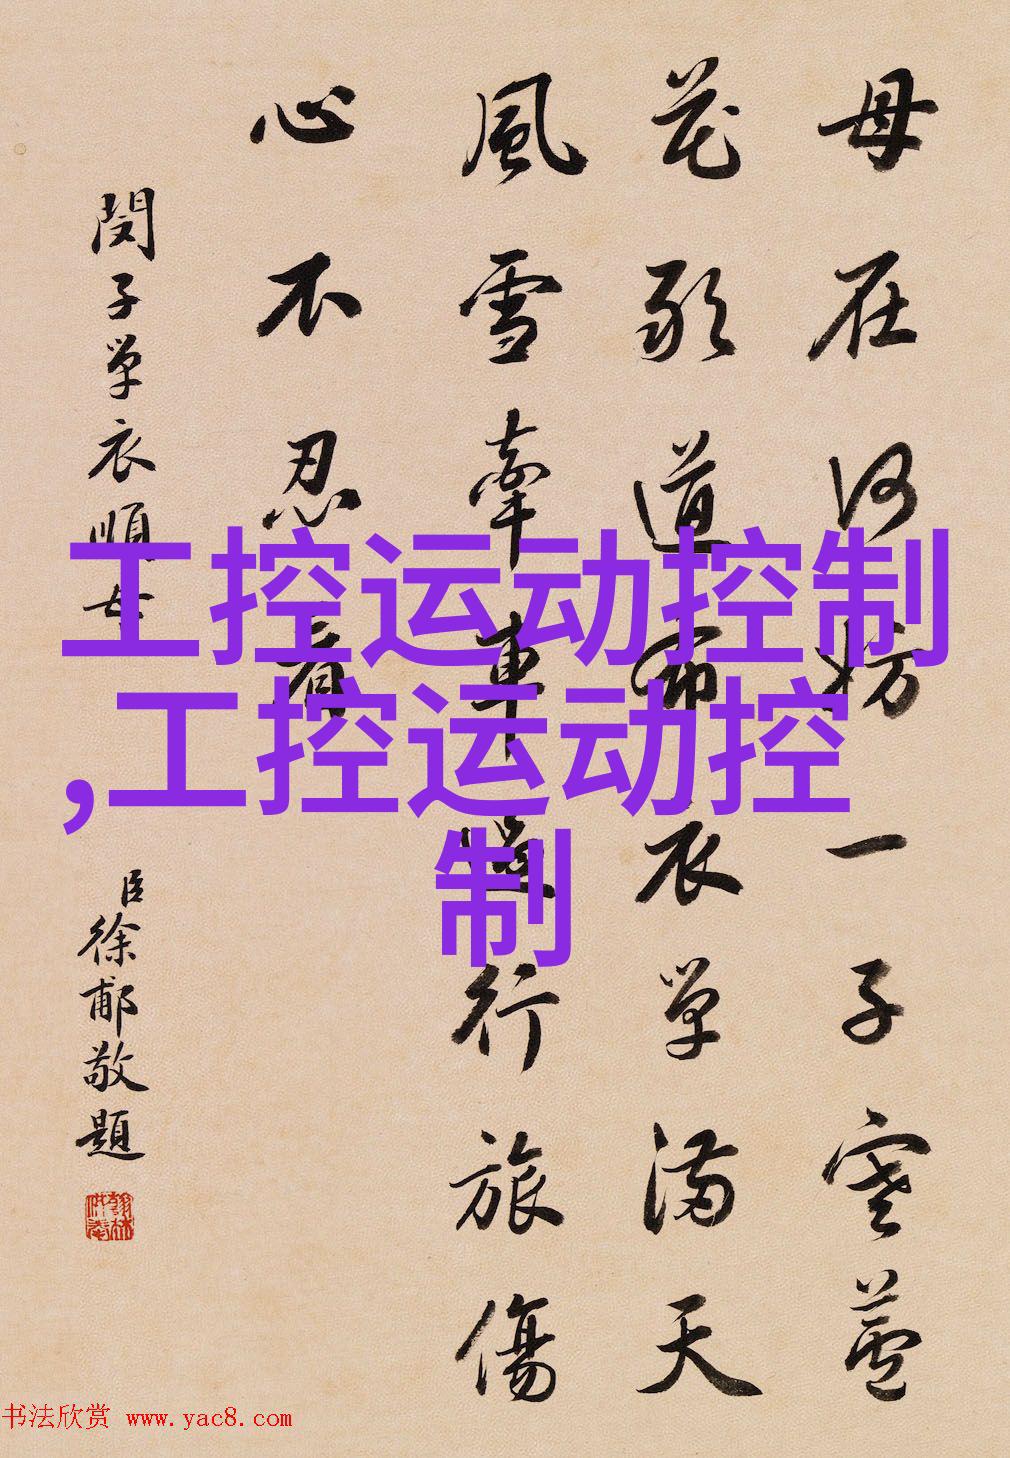 母在何妨一子寒蘆
花敢道衣單滿天
風雪牽車行旅傷
心不忍看
閔子單衣順母
臣徐郙敬題
工控运动控制
,工控运动控
制
书法欣赏 www.yac8.com